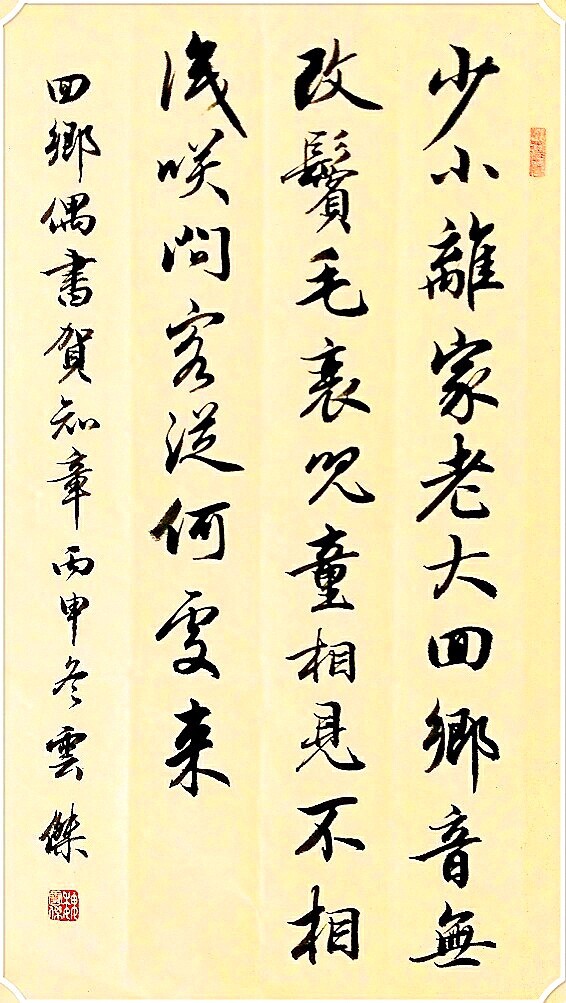 少小離家老大囬鄉音無
改鬢毛衰兒童相見不相
識咲問客從何處来
囬鄉偶書賀知章丙申冬雲傑